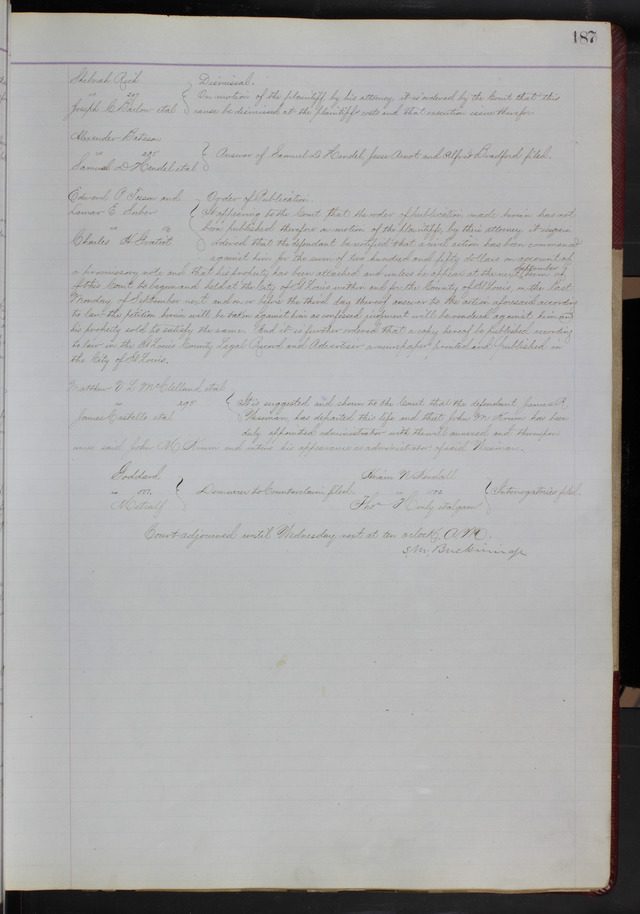 187
Dismissal.
" 207 On motion of the plaintiff by his attorney it is ordered by the Court that this
Joseph C Barlow etal cause be dismissed at the plaintiffs costs and that execution issue therefor
Alexander
" Answer of Samuel D Hendel Jesse Arnot and Alfred Bradford filed.
Samuel D Hendel etal
Edward P and Order of Publication.
Lamar E It appearing to the Court that the order of publication made herein has not
been published therefore on motion of the plaintiffs, by their attorney it is again
Charles H ordered that the defendant be notified that a civil action has been commenced
against him for the sum of two hundred and fifty dollars on account of
a promissory note and that his property has been attached and unless he appear at the next September term
of this Court to begun and held at the City of St Louis within and for the County of St Louis, on the last
Monday of September next and on or before the third day thereof answer to the action aforesaid according
to law the petition herein will be taken against him as confessed judgment will be rendered against him and
his property sold to satisfy the same. And it is further ordered that a copy hereof be published according
to law in the St Louis County Legal Record and Advertiser a newspaper printed and published in
the City of St Louis.
D L McClelland etal
" 298 It is suggested and shown to the Court that the defendant James
James Castello etal has departed this life and that John M Krum has been
duly appointed administrator with the will annexed and thereupon
comes said John M Krum and enters his appearance as administrator of said
Goddard
" Demurrer to Counterclaim filed.
Metcalf
Hiram N
" Interrogatories filed.
Thos
Court adjourned until Wednesday next at ten o'clock, A.M.